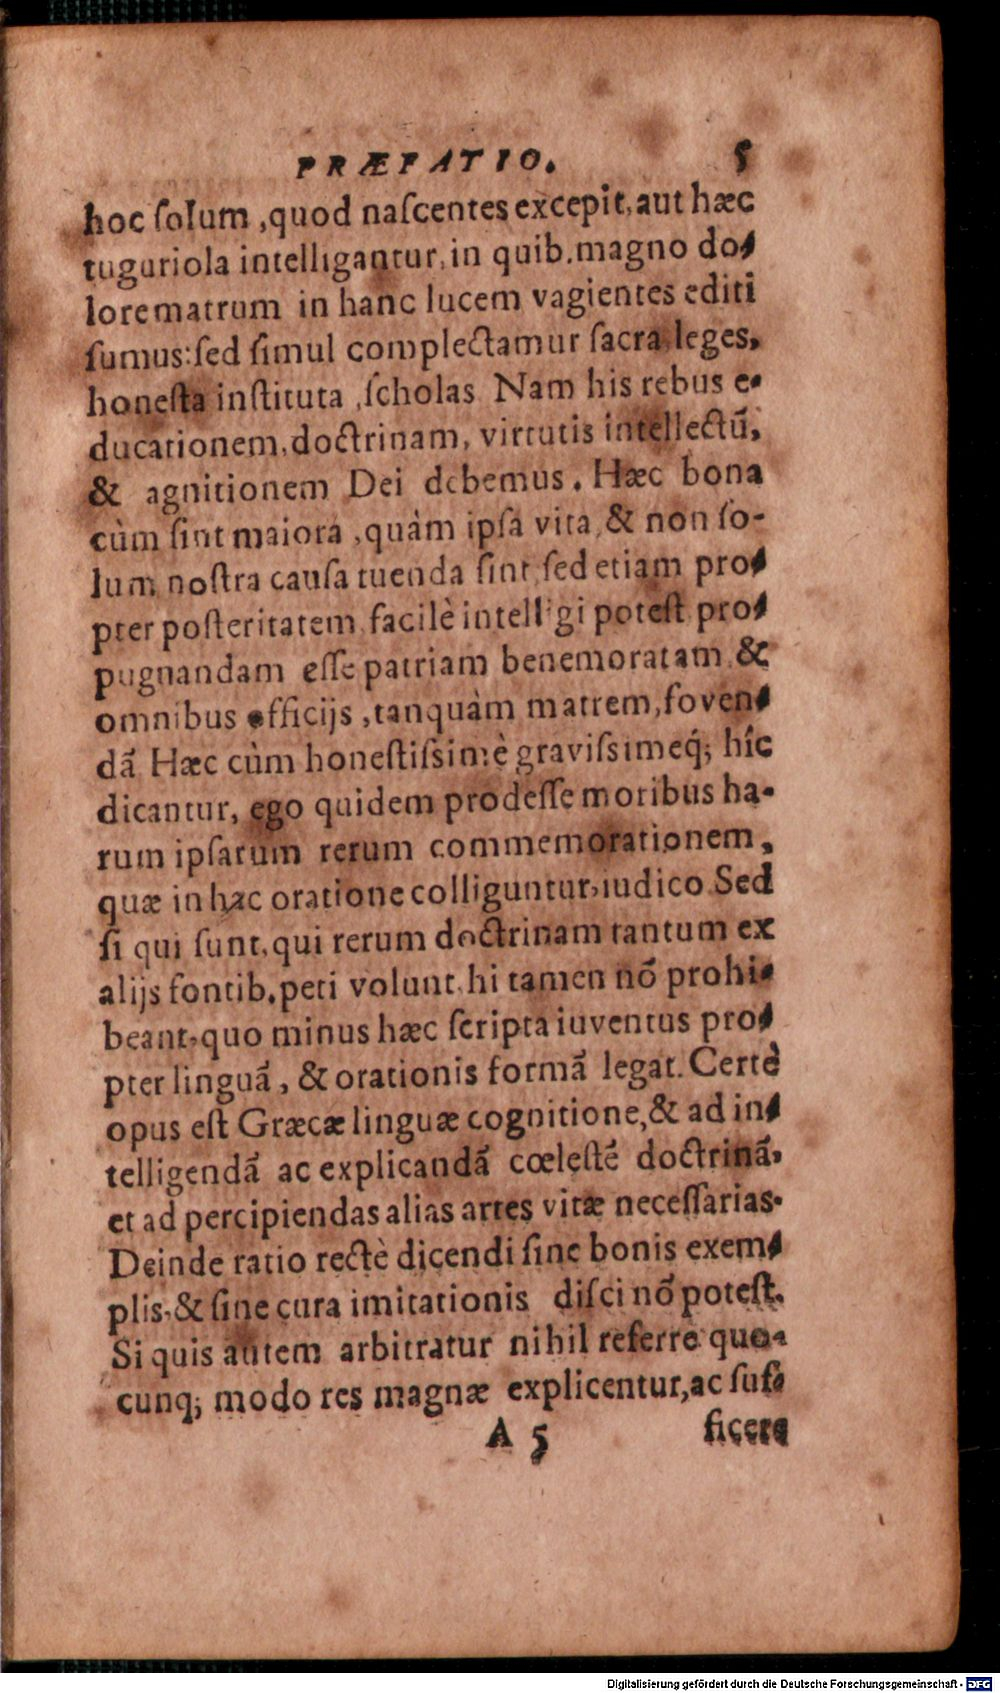 PRÆFATIO. 5
hoc ſolum, quod naſcentes excepit, aut hæc
tuguriola intelligantur, in quib. magno do-
lore matrum in hanc lucem vagientes editi
ſumus: ſed ſimul complectamur ſacra, leges,
honeſta inſtituta, ſcholas Nam his rebus e-
ducationem, doctrinam, virtutis intellectū,
& agnitionem Dei debemus. Hæc bona
cùm ſint maiora, quàm ipſa vita, & non ſo-
lum noſtra cauſa tuenda ſint, ſed etiam pro-
pter poſteritatem, facilè intelligi poteſt pro-
pugnandam eſſe patriam benemoratam, &
omnibus officijs, tanquàm matrem, foven-
dā. Hæc cùm honeſtiſsimè graviſsimeq́; hîc
dicantur, ego quidem prodeſſe moribus ha-
rum ipſarum rerum commemorationem,
quæ in hac oratione colliguntur, iudico. Sed
ſi qui ſunt, qui rerum doctrinam tantum ex
alijs fontib. peti volunt, hi tamen nō prohi-
beant, quo minus hæc ſcripta iuventus pro-
pter linguā, & orationis formā legat. Certè
opus eſt Græcæ linguæ cognitione, & ad in-
telligendā ac explicandā cœleſtē doctrinā,
et ad percipiendas alias artes vitæ neceſſarias.
Deinde ratio rectè dicendi ſine bonis exem-
plis, & ſine cura imitationis diſci nō poteſt.
Si quis autem arbitratur nihil referre quo-
cunq; modo res magnæ explicentur, ac ſuf-
A 5 ficere
Digitalisierung gefördert durch die Deutsche Forschungsgemeinschaft - DFG